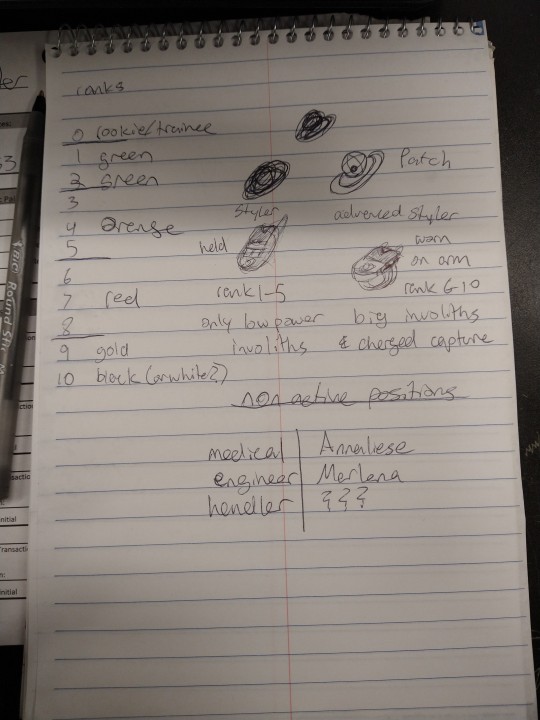 ranks
0 rookie/trainee
1 green
Patch
2 green
3
Styler
advanced Styler
4 orange
held
worn
5
on arm
6
rank 1-5
rank 6-10
7 red
8
only low power
big involiths
9 gold
involiths
& charged capture
10 black (or white?)
non active positions
medical Annaliese
engineer Merlena
handler ???